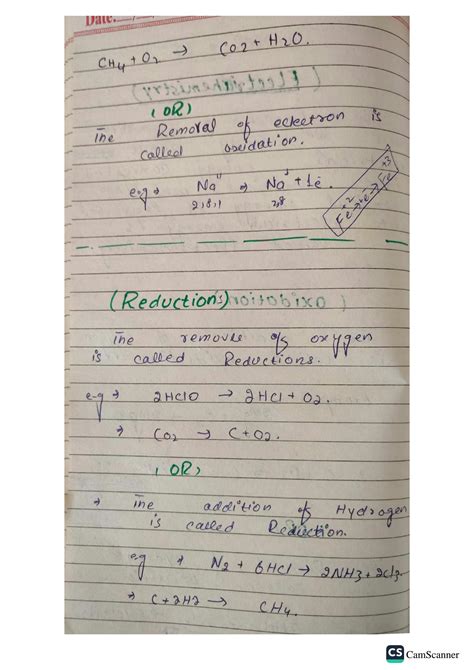 Date.
CH4 + O2 → CO2 + H2O.
(OR)
The Removal of eckectron is
called oxidation.
e.g → Na → Na + 1e.
2,8,1 2,8
Fe+2 → e → Fe+3
(Reductions)
The removle of oxygen
is called Reductions.
e-g → 2HClO → 2HCl + O2.
→ CO2 → C + O2.
(OR)
→ The addition of Hydrogen
is called Reduction.
e.g → N2 + 6HCl → 2NH3 + 2Cl3.
→ C + 2H2 → CH4.
CS CamScanner